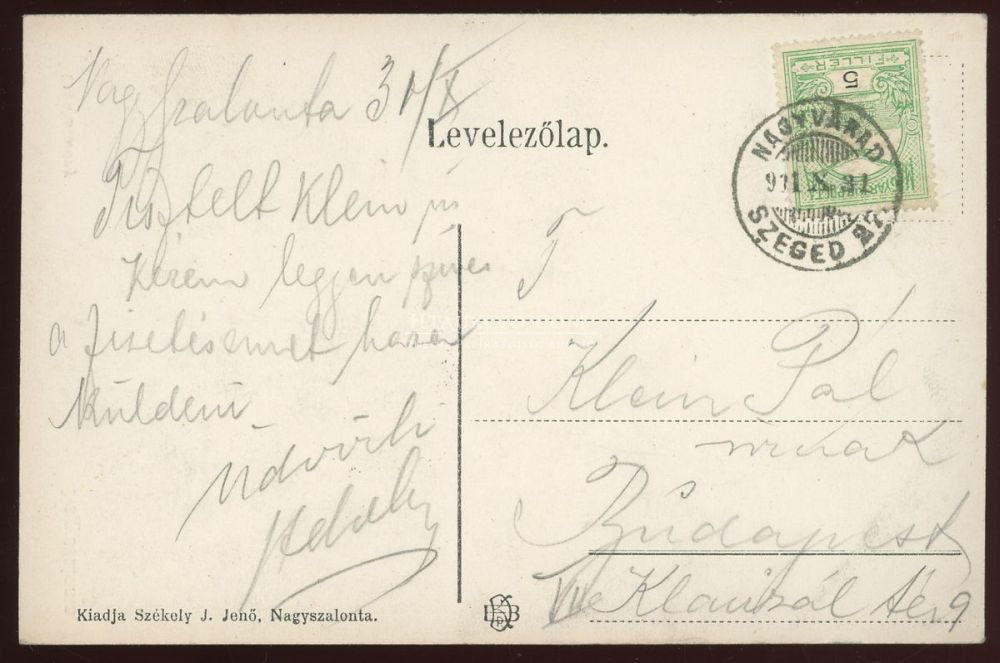 Nagyszalonta 31/X
Levelezőlap.
Tisztelt Klein úr
Kérem legyen szíves
a fizetésemet haza
küldeni
Üdvözli
FILLÉR
5
NAGYVÁRAD
911 X 31
SZEGED 27.
T
Klein Pál
úrnak
Budapest
VII Klauzál tér 9
Kiadja Székely J. Jenő, Nagyszalonta.